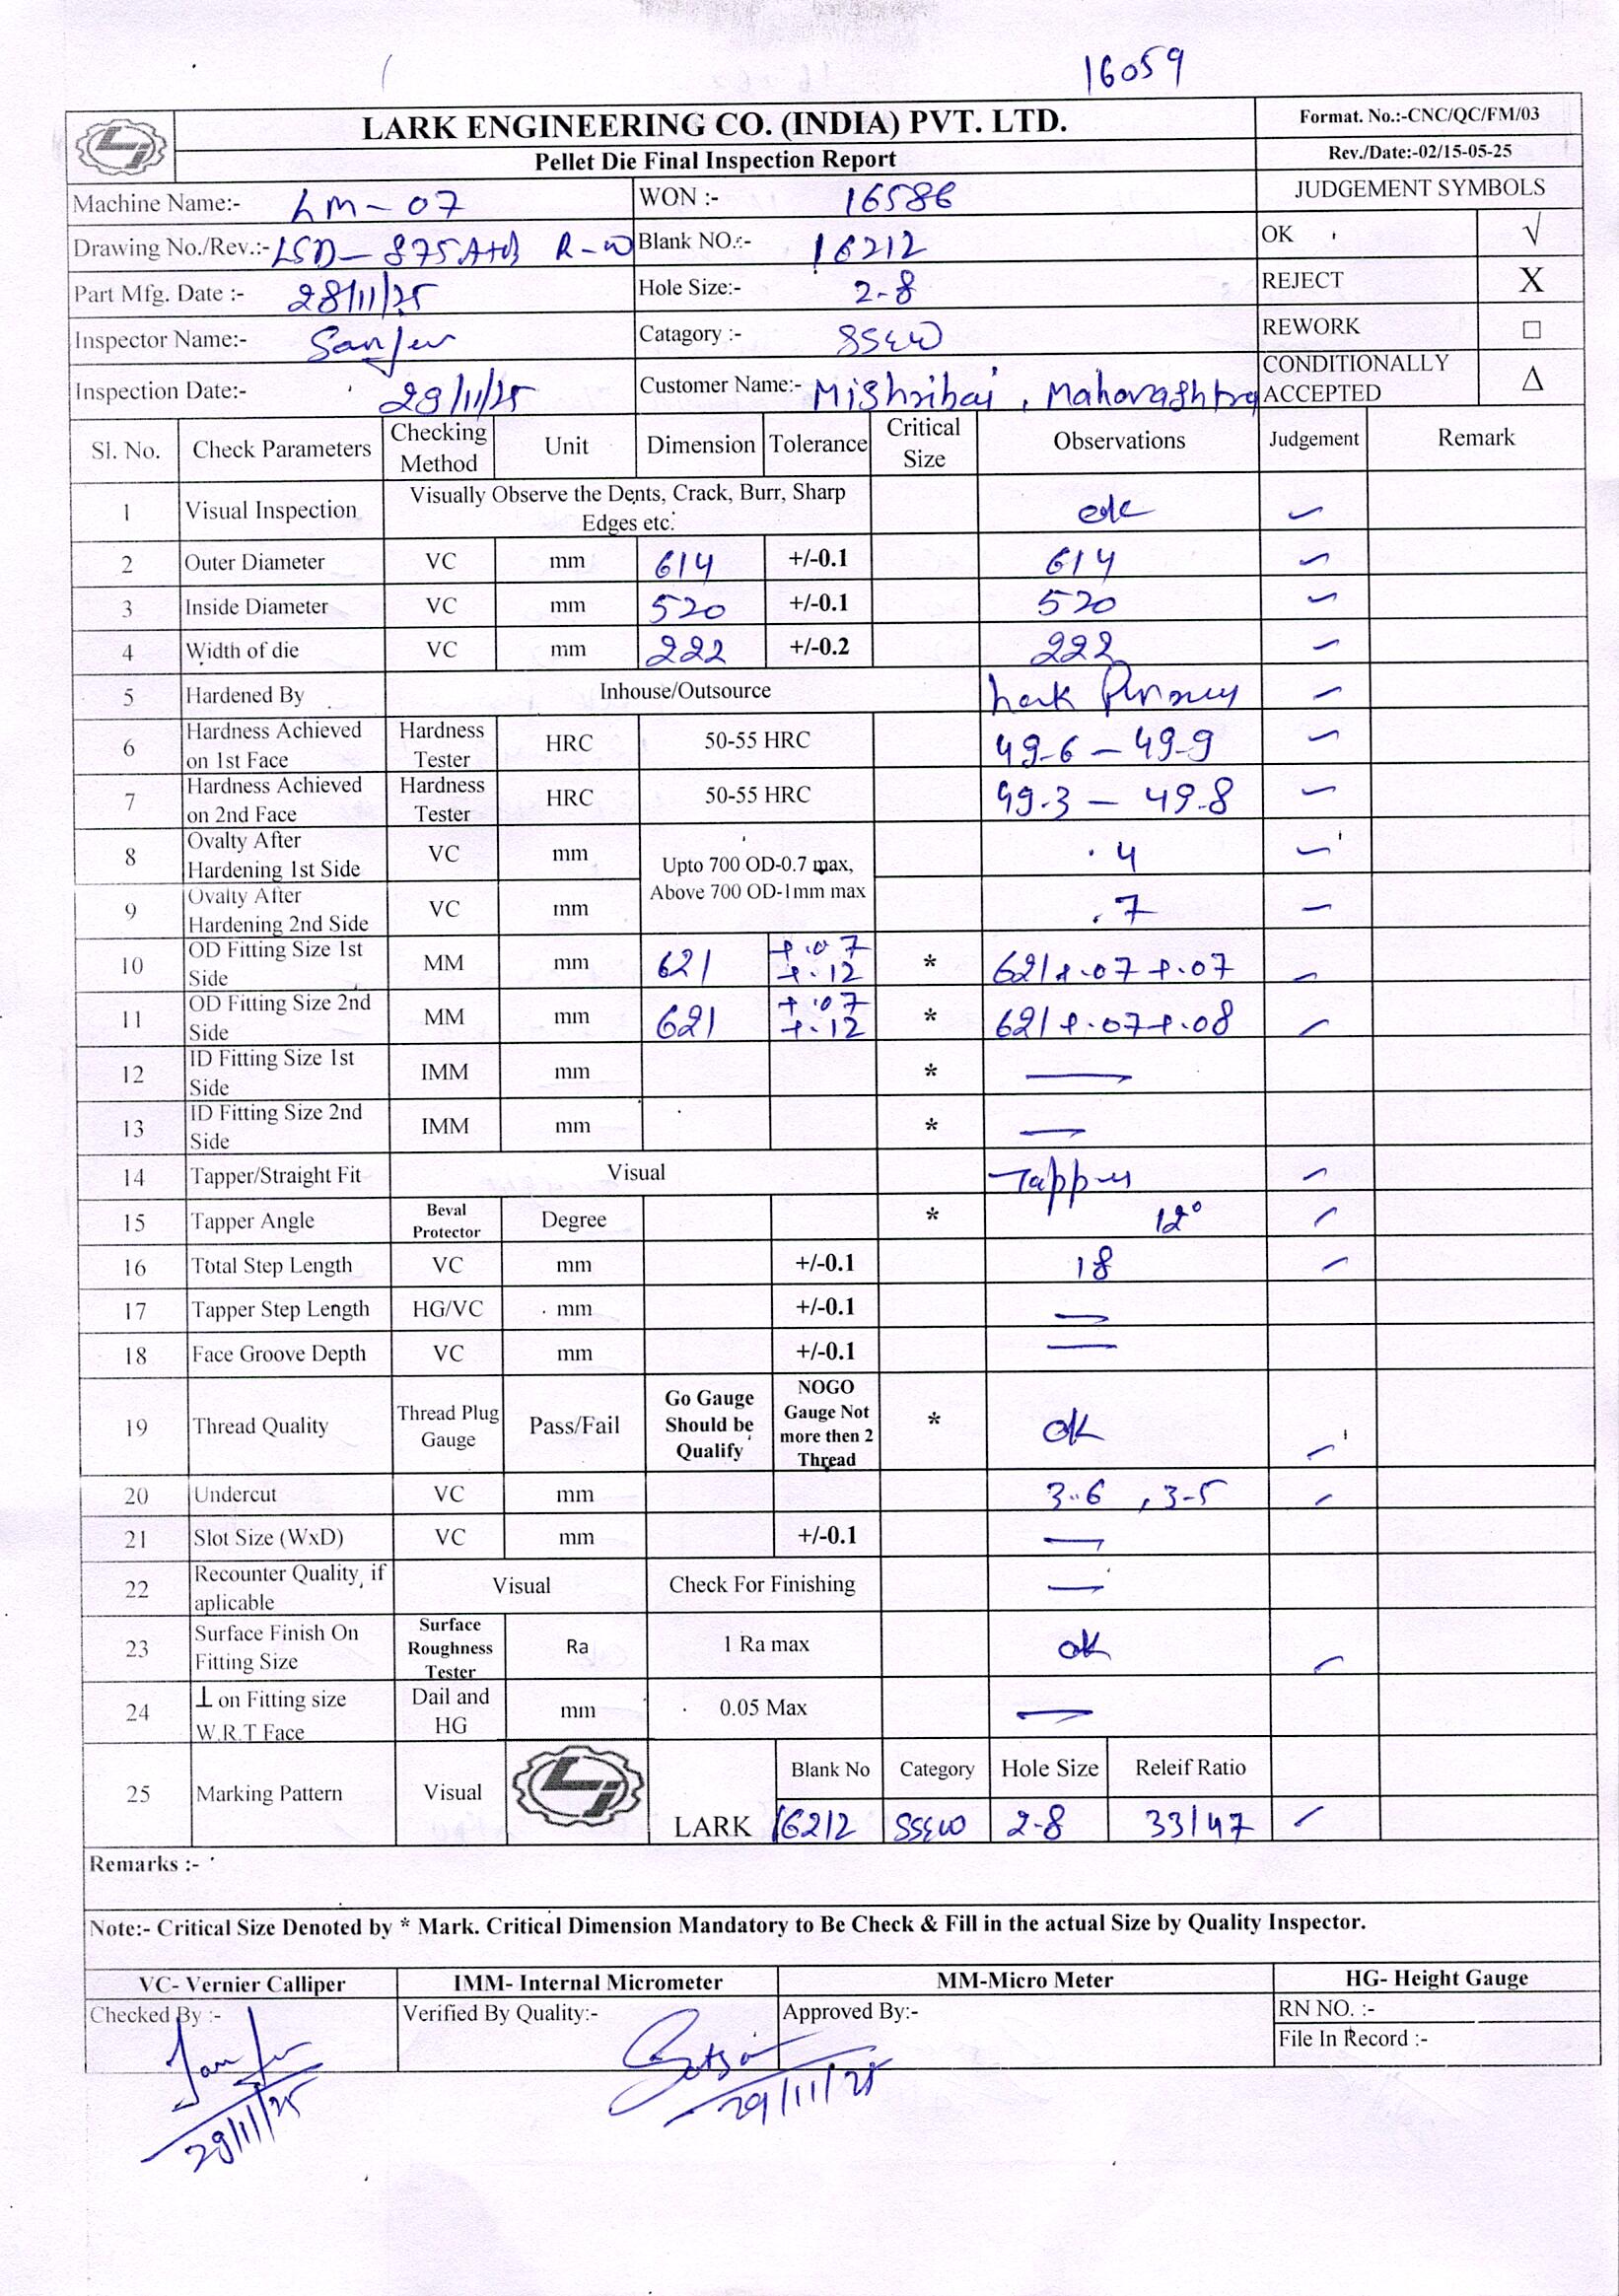 16059
LARK ENGINEERING CO. (INDIA) PVT. LTD.
Format. No.:-CNC/QC/FM/03
Pellet Die Final Inspection Report
Rev./Date:-02/15-05-25
Machine Name:- LM-07 WON :- 16586 JUDGEMENT SYMBOLS
Drawing No./Rev.:- LSD-875A+B R-W Blank NO.:- 16212 OK √
Part Mfg. Date :- 28/11/25 Hole Size:- 2-8 REJECT X
Inspector Name:- Sanjev Catagory :- SSEW REWORK □
Inspection Date:- 29/11/25 Customer Name:- Mishribai, Maharashtra CONDITIONALLY ACCEPTED Δ
Sl. No. Check Parameters Checking Method Unit Dimension Tolerance Critical Size Observations Judgement Remark
1 Visual Inspection Visually Observe the Dents, Crack, Burr, Sharp Edges etc. ok
2 Outer Diameter VC mm 614 +/-0.1 614
3 Inside Diameter VC mm 520 +/-0.1 520
4 Width of die VC mm 222 +/-0.2 222
5 Hardened By Inhouse/Outsource Lark
6 Hardness Achieved on 1st Face Hardness Tester HRC 50-55 HRC 49-6 – 49-9
7 Hardness Achieved on 2nd Face Hardness Tester HRC 50-55 HRC 49.3 – 49.8
8 Ovalty After Hardening 1st Side VC mm Upto 700 OD-0.7 max, Above 700 OD-1mm max .4
9 Ovalty After Hardening 2nd Side VC mm .7
10 OD Fitting Size 1st Side MM mm 621 +.07 +.12 * 621+.07+.07
11 OD Fitting Size 2nd Side MM mm 621 +.07 +.12 * 621+.07+.08
12 ID Fitting Size 1st Side IMM mm * —
13 ID Fitting Size 2nd Side IMM mm * —
14 Tapper/Straight Fit Visual Tapper
15 Tapper Angle Beval Protector Degree * 12°
16 Total Step Length VC mm +/-0.1 18
17 Tapper Step Length HG/VC mm +/-0.1 —
18 Face Groove Depth VC mm +/-0.1 —
19 Thread Quality Thread Plug Gauge Pass/Fail Go Gauge Should be Qualify NOGO Gauge Not more then 2 Thread * ok
20 Undercut VC mm 3.6 , 3-5
21 Slot Size (WxD) VC mm +/-0.1 —
22 Recounter Quality, if aplicable Visual Check For Finishing —
23 Surface Finish On Fitting Size Surface Roughness Tester Ra 1 Ra max ok
24 ⊥ on Fitting size W.R.T Face Dail and HG mm 0.05 Max —
25 Marking Pattern Visual LARK Blank No Category Hole Size Releif Ratio
16212 SSEW 2-8 33/47
Remarks :-
Note:- Critical Size Denoted by * Mark. Critical Dimension Mandatory to Be Check & Fill in the actual Size by Quality Inspector.
VC- Vernier Calliper IMM- Internal Micrometer MM-Micro Meter HG- Height Gauge
Checked By :- Verified By Quality:- Approved By:- RN NO. :-
File In Record :-
Sanjev
29/11/25 29/11/25